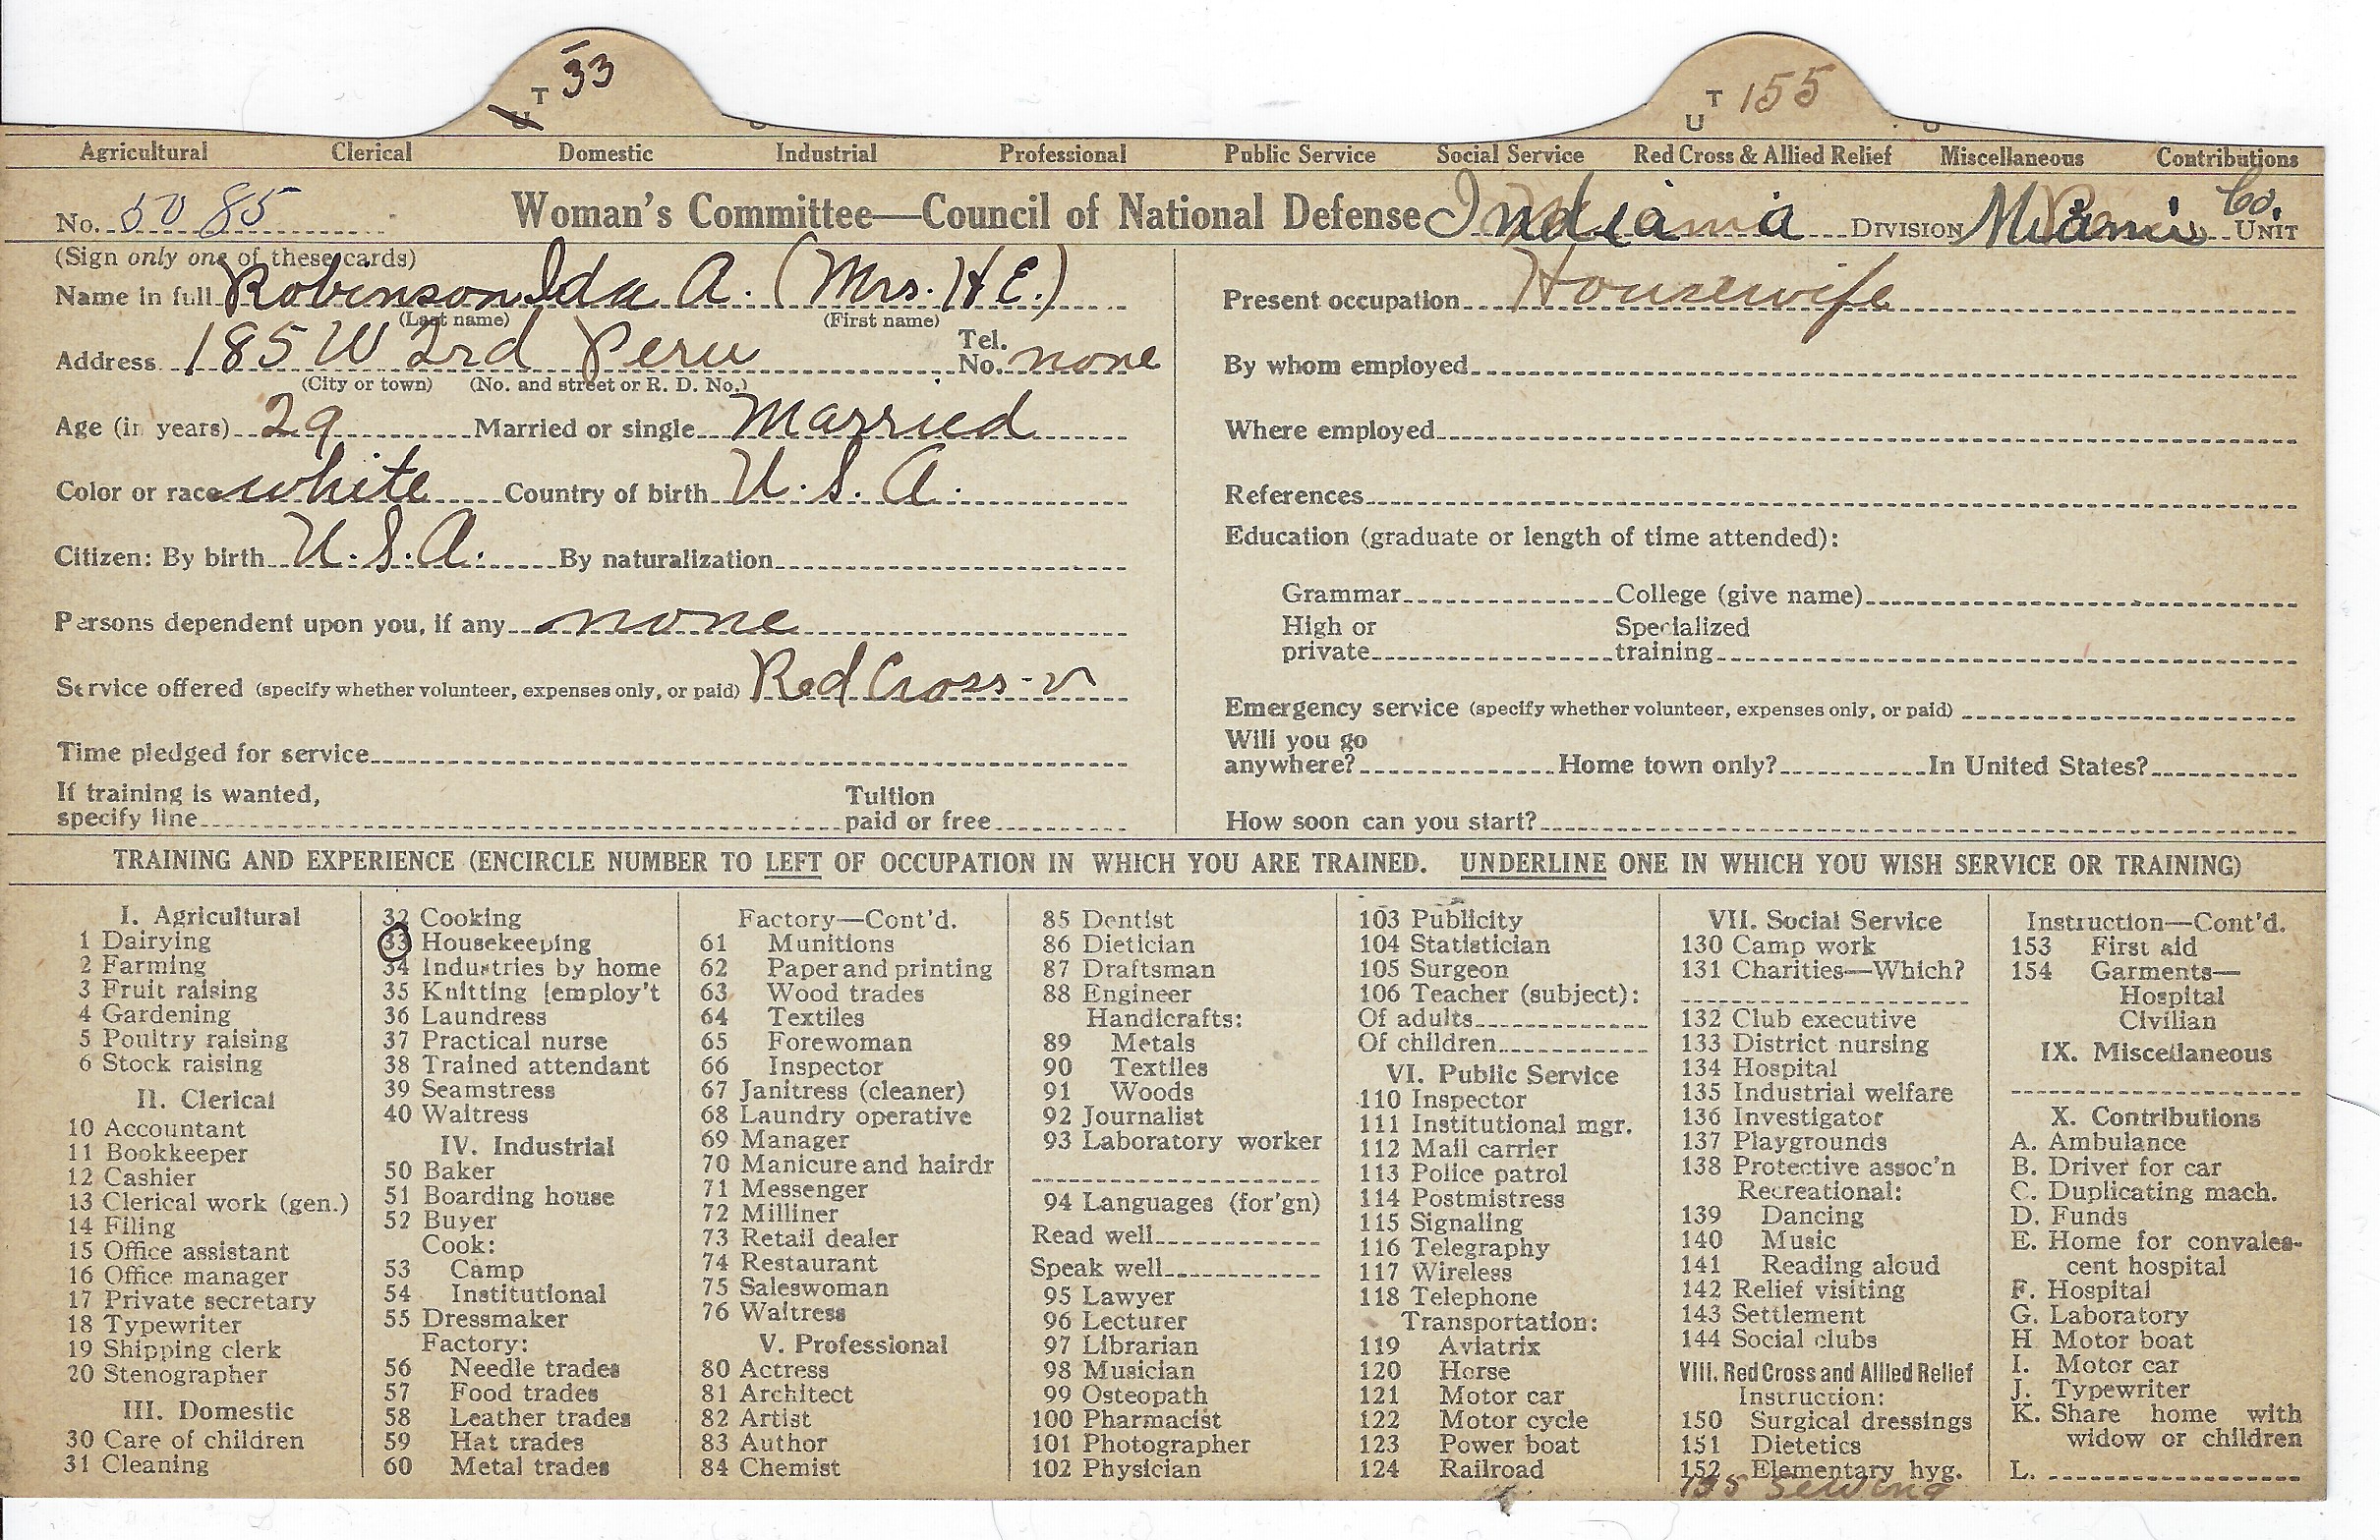 T 33
U
T 155
U
Agricultural Clerical Domestic Industrial Professional Public Service Social Service Red Cross & Allied Relief Miscellaneous Contributions
No. 5085 Woman's Committee—Council of National Defense Indiana DIVISION Miami Co. UNIT
(Sign only one of these cards)
Name in full Robinson Ida A. (Mrs. H E.)
(Last name) (First name)
Address 185 W 2nd Peru Tel. No. none
(City or town) (No. and street or R. D. No.)
Age (in years) 29 Married or single Married
Color or race white Country of birth U. S. A.
Citizen: By birth U.S.A. By naturalization
Persons dependent upon you, if any none
Service offered (specify whether volunteer, expenses only, or paid) Red Cross - v
Time pledged for service
If training is wanted,
specify line Tuition paid or free
Present occupation Housewife
By whom employed
Where employed
References
Education (graduate or length of time attended):
Grammar College (give name)
High or private Specialized training
Emergency service (specify whether volunteer, expenses only, or paid)
Will you go
anywhere? Home town only? In United States?
How soon can you start?
TRAINING AND EXPERIENCE (ENCIRCLE NUMBER TO LEFT OF OCCUPATION IN WHICH YOU ARE TRAINED. UNDERLINE ONE IN WHICH YOU WISH SERVICE OR TRAINING)
I. Agricultural
1 Dairying
2 Farming
3 Fruit raising
4 Gardening
5 Poultry raising
6 Stock raising
II. Clerical
10 Accountant
11 Bookkeeper
12 Cashier
13 Clerical work (gen.)
14 Filing
15 Office assistant
16 Office manager
17 Private secretary
18 Typewriter
19 Shipping clerk
20 Stenographer
III. Domestic
30 Care of children
31 Cleaning
32 Cooking
33 Housekeeping
34 Industries by home
35 Knitting [employ't
36 Laundress
37 Practical nurse
38 Trained attendant
39 Seamstress
40 Waitress
IV. Industrial
50 Baker
51 Boarding house
52 Buyer
Cook:
53 Camp
54 Institutional
55 Dressmaker
Factory:
56 Needle trades
57 Food trades
58 Leather trades
59 Hat trades
60 Metal trades
Factory—Cont'd.
61 Munitions
62 Paper and printing
63 Wood trades
64 Textiles
65 Forewoman
66 Inspector
67 Janitress (cleaner)
68 Laundry operative
69 Manager
70 Manicure and hairdr
71 Messenger
72 Milliner
73 Retail dealer
74 Restaurant
75 Saleswoman
76 Waitress
V. Professional
80 Actress
81 Architect
82 Artist
83 Author
84 Chemist
85 Dentist
86 Dietician
87 Draftsman
88 Engineer
Handicrafts:
89 Metals
90 Textiles
91 Woods
92 Journalist
93 Laboratory worker
94 Languages (for'gn)
Read well
Speak well
95 Lawyer
96 Lecturer
97 Librarian
98 Musician
99 Osteopath
100 Pharmacist
101 Photographer
102 Physician
103 Publicity
104 Statistician
105 Surgeon
106 Teacher (subject):
Of adults
Of children
VI. Public Service
110 Inspector
111 Institutional mgr.
112 Mail carrier
113 Police patrol
114 Postmistress
115 Signaling
116 Telegraphy
117 Wireless
118 Telephone
Transportation:
119 Aviatrix
120 Horse
121 Motor car
122 Motor cycle
123 Power boat
124 Railroad
VII. Social Service
130 Camp work
131 Charities—Which?
132 Club executive
133 District nursing
134 Hospital
135 Industrial welfare
136 Investigator
137 Playgrounds
138 Protective assoc'n
Recreational:
139 Dancing
140 Music
141 Reading aloud
142 Relief visiting
143 Settlement
144 Social clubs
VIII. Red Cross and Allied Relief
Instruction:
150 Surgical dressings
151 Dietetics
152 Elementary hyg.
155 Sewing
Instruction—Cont'd.
153 First aid
154 Garments—
Hospital
Civilian
IX. Miscellaneous
X. Contributions
A. Ambulance
B. Driver for car
C. Duplicating mach.
D. Funds
E. Home for convales-
cent hospital
F. Hospital
G. Laboratory
H Motor boat
I. Motor car
J. Typewriter
K. Share home with
widow or children
L.